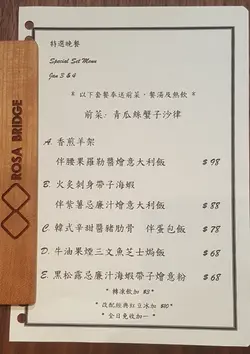 特選晚餐
Special Set Menu
Jan 3 & 4
* 以下套餐奉送前菜、餐湯及熱飲 *
前菜: 青瓜絲蟹子沙律
A. 香煎羊架
伴腰果羅勒醬燴意大利飯 $98
B. 火炙刺身帶子海蝦
伴紫薯忌廉汁燴意大利飯 $88
C. 韓式辛甜醬豬肋骨 伴蛋包飯 $78
D. 牛油果煙三文魚芝士焗飯 $68
E. 黑松露忌廉汁海蝦帶子燴意粉 $68
* 轉凍飲加 $3 *
* 改配經典紅豆冰加 $10 *
* 全日免收加一 *
ROSA BRIDGE